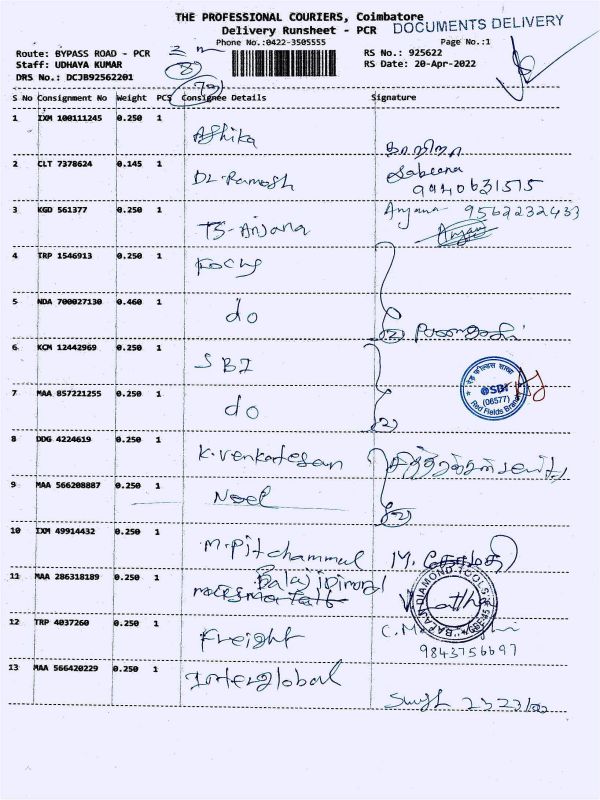 THE PROFESSIONAL COURIERS, Coimbatore
DOCUMENTS DELIVERY
Delivery Runsheet - PCR
Phone No.:0422-3505555
Page No.:1
Route: BYPASS ROAD - PCR
RS No.: 925622
Staff: UDHAYA KUMAR
RS Date: 20-Apr-2022
DRS No.: DCJB92562201
S No Consignment No Weight PCS Consignee Details Signature
1 IXM 100111245 0.250 1 Ashika
2 CLT 7378624 0.145 1 Dr. Ramesh Sabeena
9940631515
3 KGD 561377 0.250 1 TS-Anjana Anjana 9562232433
Anjana
4 TRP 1546913 0.250 1 Focus
5 NDA 700027130 0.460 1 do (2)
6 KCM 12442969 0.250 1 SBI
SBI
(06577)
Red Fields Branch
7 MAA 857221255 0.250 1 do (2)
8 DDG 4224619 0.250 1 K. Venkatesan
9 MAA 566208887 0.250 1 Noel (2)
10 IXM 49914432 0.250 1 M. Pitchammal M.
11 MAA 286318189 0.250 1 Balaji Dimond
BALAJI DIAMOND TOOLS
12 TRP 4037260 0.250 1 Freight
9843756697
13 MAA 566420229 0.250 1 Interglobal